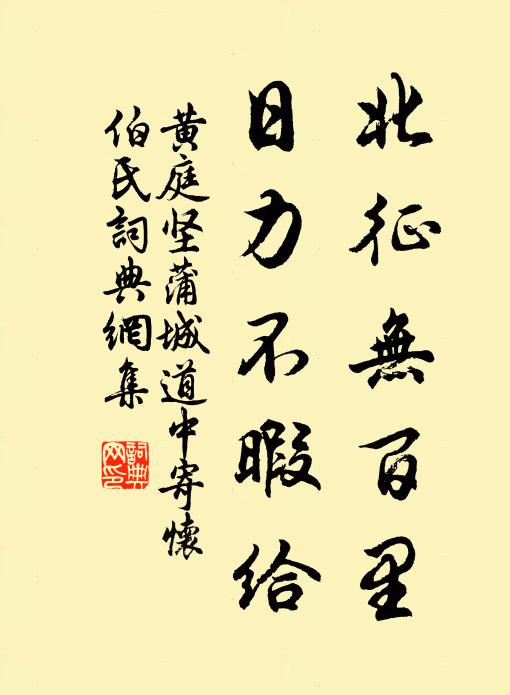 北征無百里
日力不暇给
黄庭坚蒲城道中寄懷
伯氏詞典網集
詞典
网印